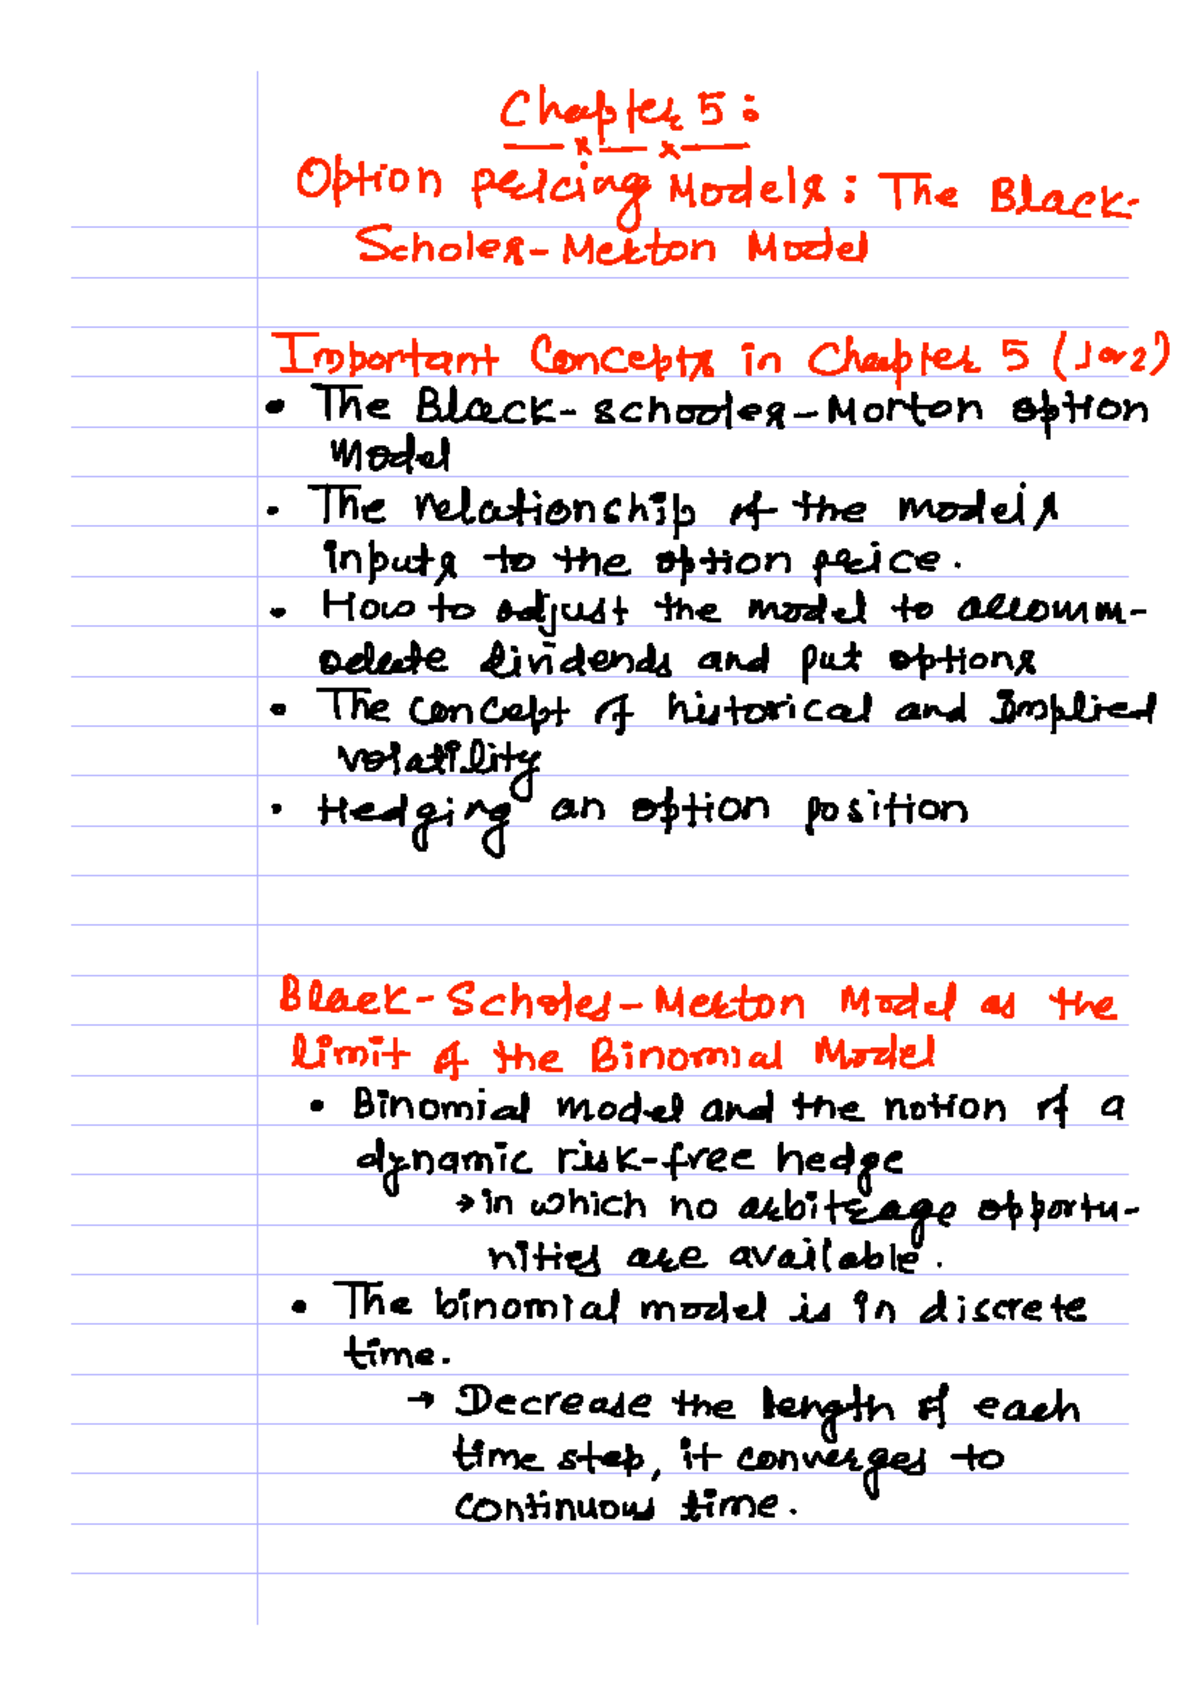 Chapter 5:
Option Pricing Models: The Black-
Scholes-Merton Model
Important Concepts in Chapter 5 (1 or 2)
• The Black-schooles-Morton option
Model
• The relationship of the model's
inputs to the option price.
• How to adjust the model to accomm-
odate dividends and put options
• The concept of historical and Implied
volatility
• Hedging an option position
Black-Scholes-Merton Model as the
limit of the Binomial Model
• Binomial model and the notion of a
dynamic risk-free hedge
→ in which no arbitrage opportu-
nities are available.
• The binomial model is in discrete
time.
→ Decrease the length of each
time step, it converges to
continuous time.